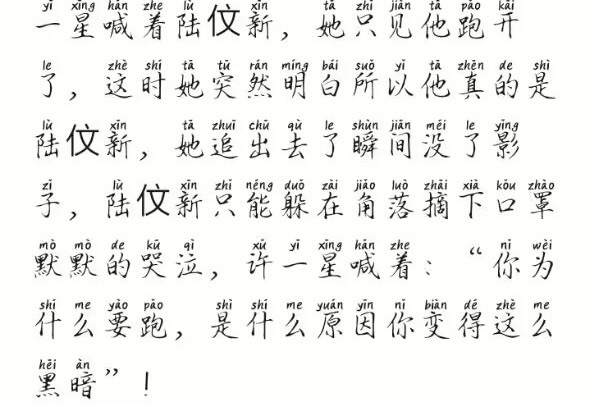 yī xīng hǎn zhe lù xīn tā zhǐ jiàn tā pǎo kāi
一星喊着陆伩新，她只见他跑开
le zhè shí tā tū rán míng bái suǒ yǐ tā zhēn de shì
了，这时她突然明白所以他真的是
lù xīn tā zhuī chū qù le shùn jiān méi le yǐng
陆伩新，她追出去了瞬间没了影
zǐ lù xīn zhǐ néng duǒ zài jiǎo luò zhāi xià kǒu zhào
子，陆伩新只能躲在角落摘下口罩
mò mò de kū qì xǔ yī xīng hǎn zhe nǐ wèi
默默的哭泣，许一星喊着：“你为
shí me yào pǎo shì shí me yuán yīn nǐ biàn dé zhè me
什么要跑，是什么原因你变得这么
hēi àn
黑暗”！